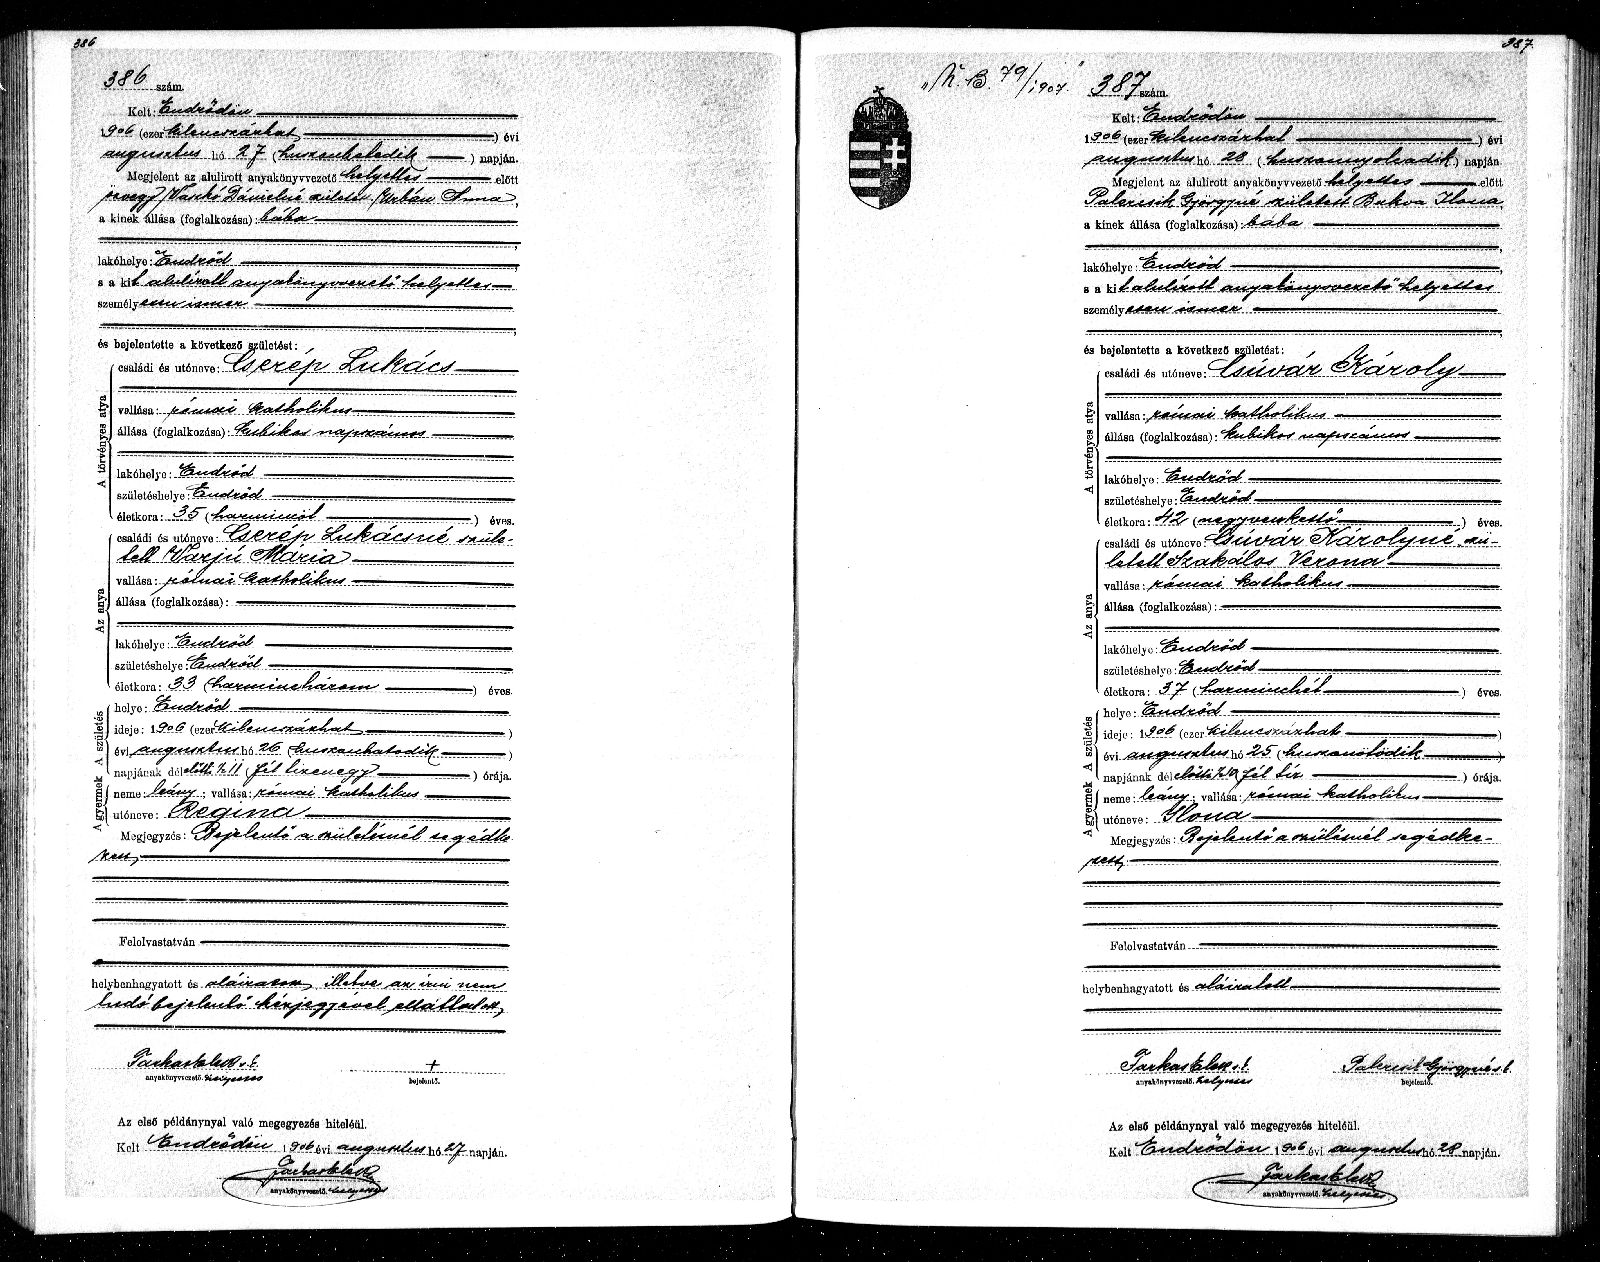 386
386 szám.
Kelt: Endrődön
1906 (ezer kilenczszázhat) évi
augusztus hó 27 (huszonhetedik) napján.
Megjelent az alulirott anyakönyvvezető helyettes előtt
Vaskó Dánielné született Urbán Anna,
a kinek állása (foglalkozása): bába
lakóhelye: Endrőd
s a kit alulírott anyakönyvvezető helyettes
személyesen ismer
és bejelentette a következő születést:
A törvényes atya
családi és utóneve: Cserép Lukács
vallása: római katholikus
állása (foglalkozása): kubikos napszámos
lakóhelye: Endrőd
születéshelye: Endrőd
életkora: 35 (harminczöt) éves.
Az anya
családi és utóneve: Cserép Lukácsné szüle-
tett Varjú Mária
vallása: római katholikus
állása (foglalkozása):
lakóhelye: Endrőd
születéshelye: Endrőd
életkora: 33 (harminczhárom) éves.
A születés
helye: Endrőd
ideje: 1906 (ezer kilenczszázhat)
évi augusztus hó 26 (huszonhatodik)
napjának délelőtti ½11 (fél tizenegy) órája.
A gyermek
neme: leány; vallása: római katholikus
utóneve: Regina
Megjegyzés: Bejelentő a születésnél segédke-
zett,
Felolvastatván
helybenhagyatott és aláiratott, illetve az írni nem
tudó bejelentő kézjegyével elláttatott,
Farkas Elek s. k.
anyakönyvvezető. helyettes
+
bejelentő.
Az első példánynyal való megegyezés hiteléül.
Kelt Endrődön 1906 évi augusztus hó 27 napján.
Farkas Elek
anyakönyvvezető. helyettes
387
"N. B. 79/1907."
387 szám.
Kelt: Endrődön
1906 (ezer kilenczszázhat) évi
augusztus hó 28 (huszonnyolcadik) napján
Megjelent az alulirott anyakönyvvezető helyettes előtt
Palecsik Györgyné született Bukva Ilona,
a kinek állása (foglalkozása): bába
lakóhelye: Endrőd
s a kit alulírott anyakönyvvezető helyettes
személyesen ismer
és bejelentette a következő születést:
A törvényes atya
családi és utóneve: Csúvár Károly
vallása: római katholikus
állása (foglalkozása): kubikos napszámos
lakóhelye: Endrőd
születéshelye: Endrőd
életkora: 42 (negyvenkettő) éves.
Az anya
családi és utóneve: Csúvár Károlyné szü-
letett Szakálos Verona
vallása: római katholikus
állása (foglalkozása):
lakóhelye: Endrőd
születéshelye: Endrőd
életkora: 37 (harminczhét) éves.
A születés
helye: Endrőd
ideje: 1906 (ezer kilenczszázhat)
évi augusztus hó 25 (huszonötödik)
napjának délelőtti ½10 (fél tíz) órája.
A gyermek
neme: leány; vallása: római katholikus
utóneve: Ilona
Megjegyzés: Bejelentő a szülésnél segédke-
zett,
Felolvastatván
helybenhagyatott és aláiratott
Farkas Elek s. k.
anyakönyvvezető. helyettes
Palecsik Györgyné s. k.
bejelentő.
Az első példánynyal való megegyezés hiteléül.
Kelt Endrődön 1906 évi augusztus hó 28 napján.
Farkas Elek
anyakönyvvezető. helyettes